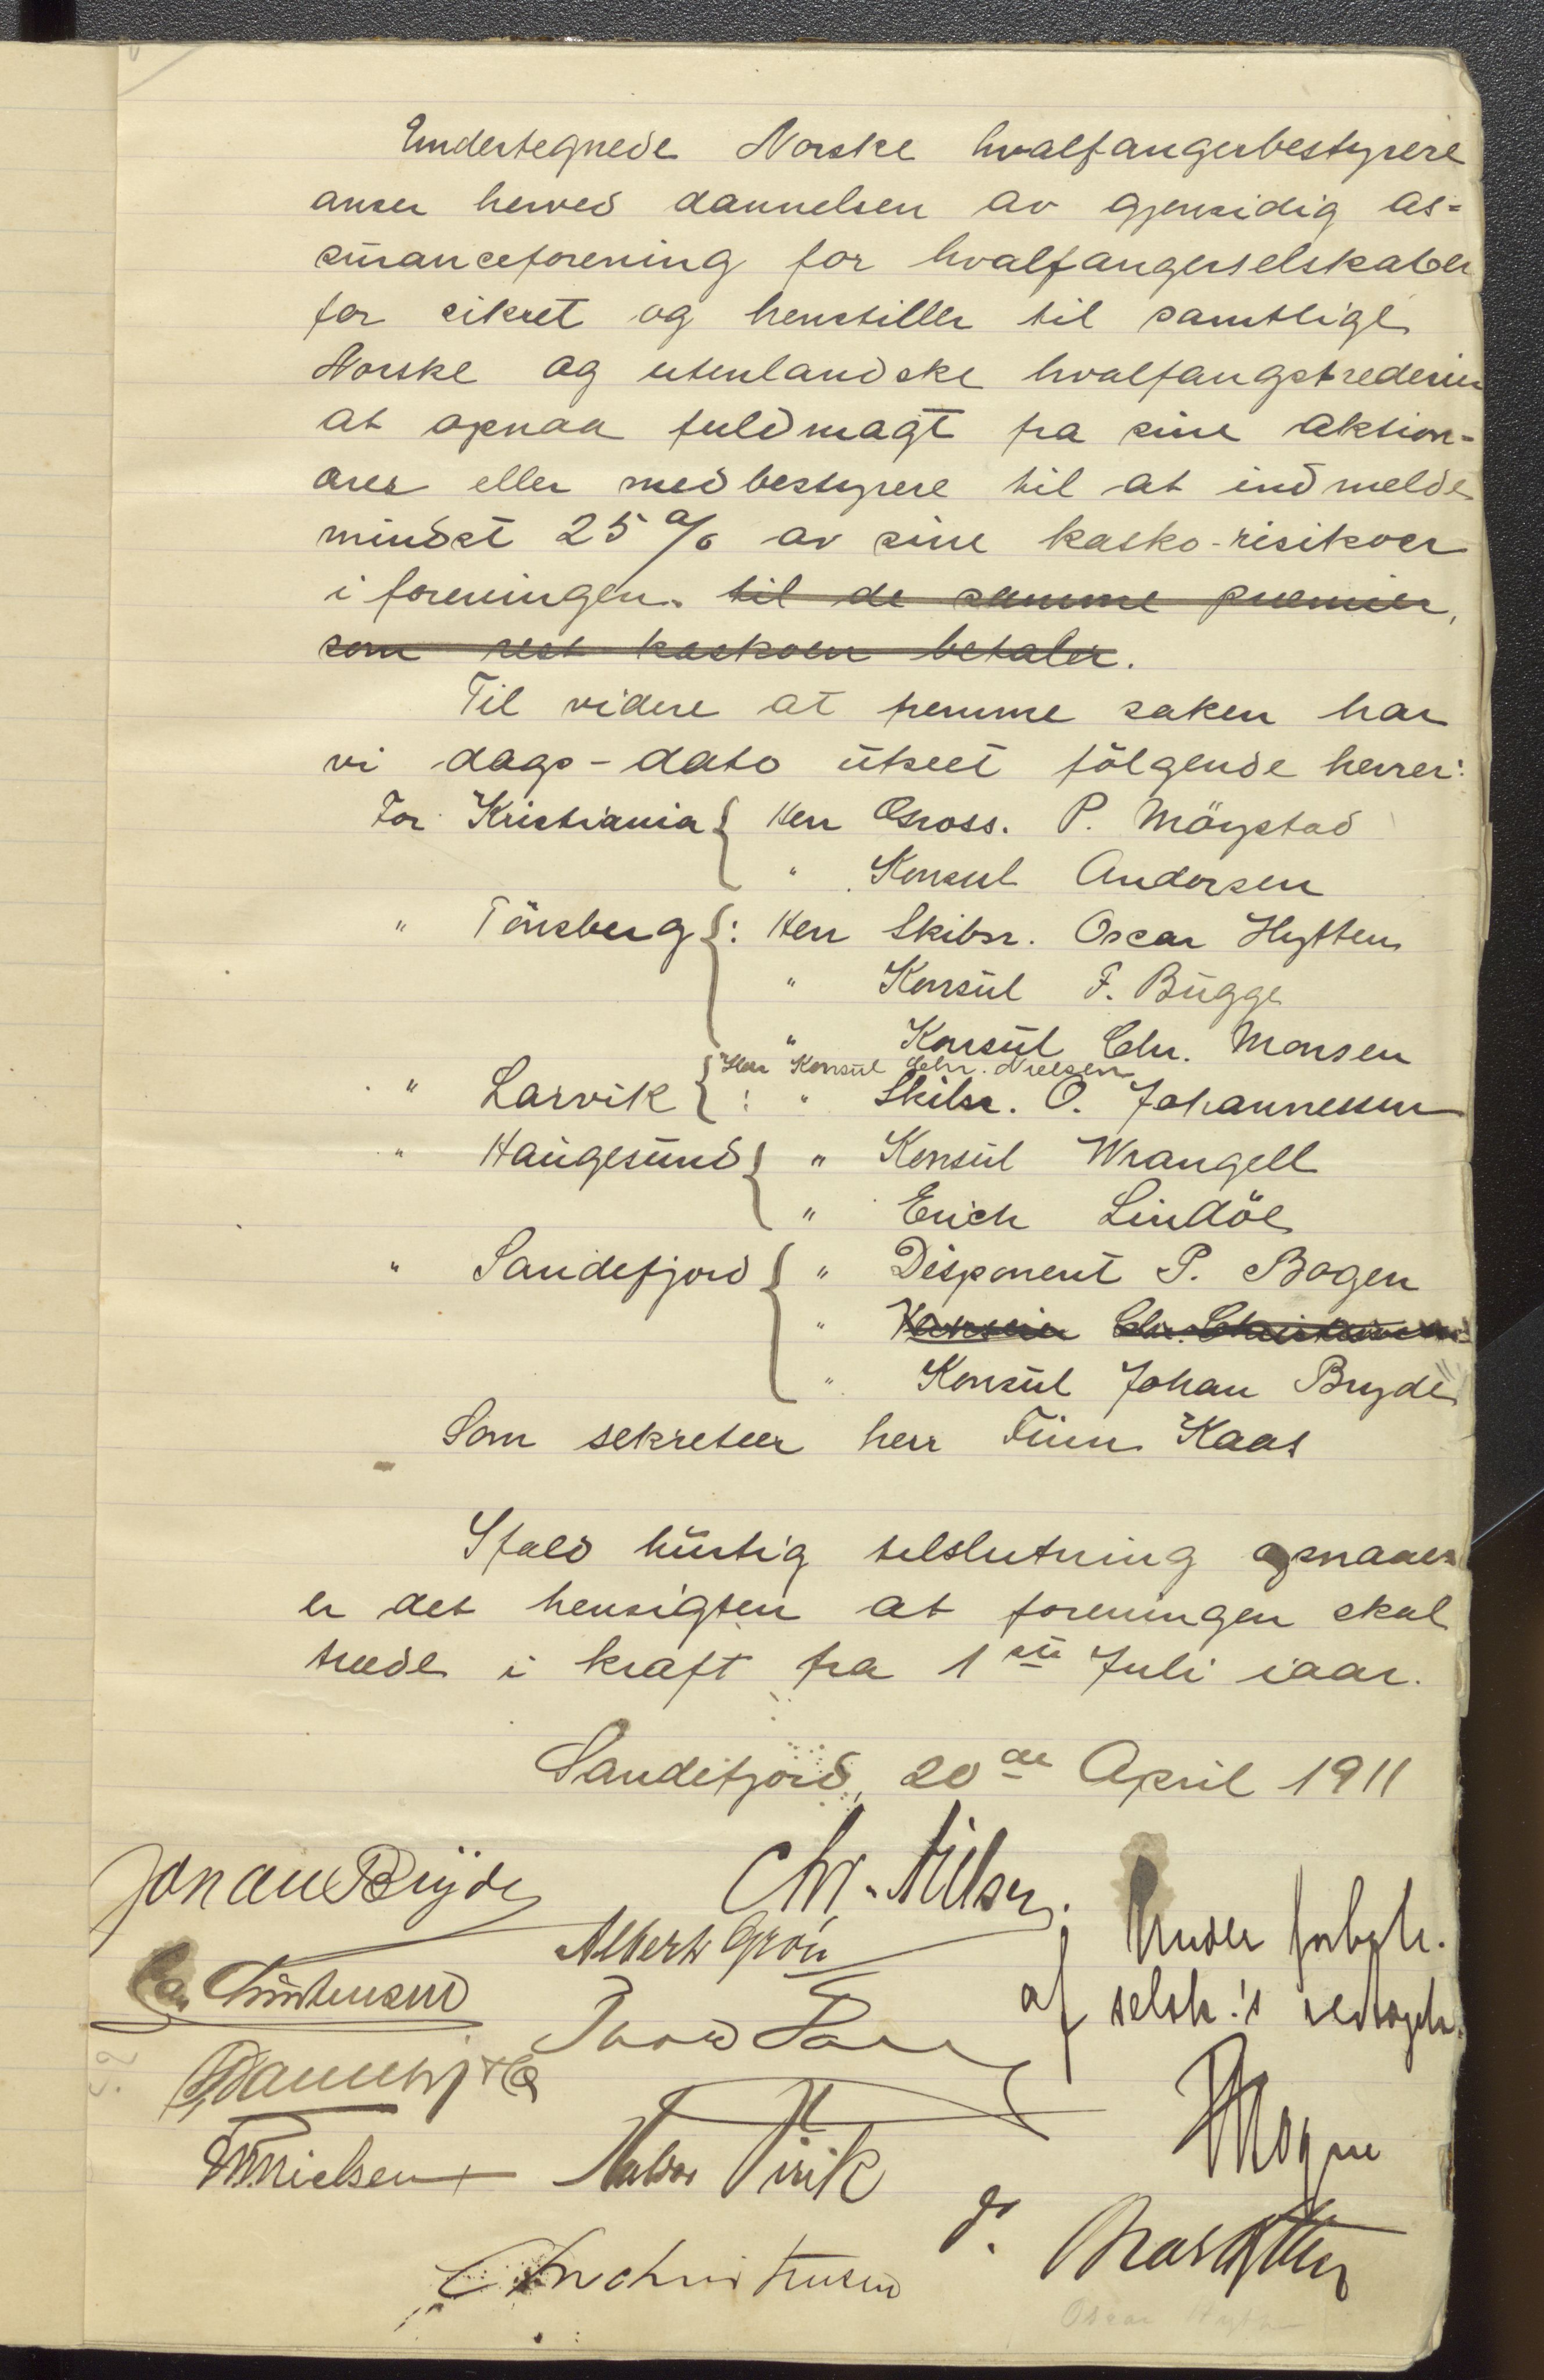 Undertegnede Norske hvalfangerbestyrere
anser herved dannelsen av gjensidig as=
suranceforening for hvalfangerselskaber
for sikret og henstiller til samtlige
Norske og utenlandske hvalfangstrederier
at opnaa fuldmagt fra sine aktion-
ærer eller medbestyrere til at indmelde
mindst 25 % av sine kasko-risikoer
i foreningen. til de samme præmier,
som rest kaskoen betaler.
Til videre at fremme saken har
vi dags-dato utseet følgende herrer:
For Kristiania { Herr Gross. P. Møystad
" Konsul Andersen
" Tönsberg {: Herr Skibsr. Oscar Hytten
" Konsul F. Bugge
" Konsul Chr. Monsen
Herr Konsul Chr. Nielsen
" Larvik { : " Skibsr. O. Johannessen
" Haugesund { " Konsul Wrangell
" Erich Lindöe
" Sandefjord { " Disponent P. Bogen
" Konsul Chr. Christensen
" Konsul Johan Bryde
Som sekretær herr Finn Kaas
Ifald hurtig tilslutning opnaaes
er det hensigten at foreningen skal
træde i kraft fra 1ste Juli iaar.
Sandefjord, 20de April 1911
Johan Bryde
Chr. Nielsen.
Albert Grøn
Under forbeh.
af selsk.'s vedtagelse.
Christensen
Thor Dahl
& Co
Nielsen
Virik
P Bogen
do.
Oscar Hytten
Chr Christensen
Oscar Hytten